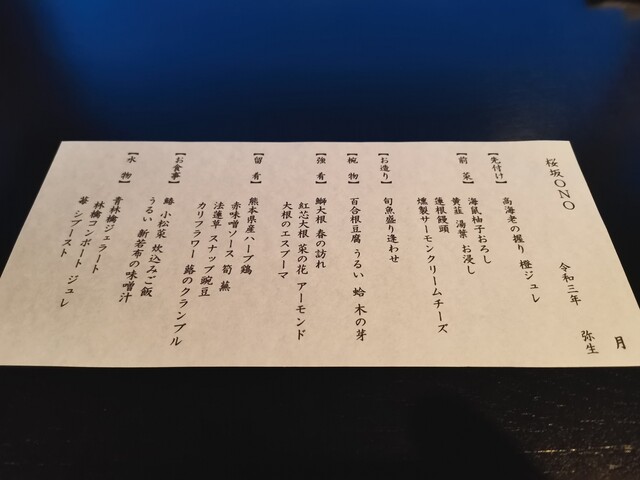 月
桜坂ONO　令和三年　弥生
【先付け】　高海老の握り 橙ジュレ
【前菜】　海鼠柚子おろし
黄韮 湯葉 お浸し
蓮根饅頭
燻製サーモンクリームチーズ
【お造り】　旬魚盛り逢わせ
【椀物】　百合根豆腐 うるい 蛤 木の芽
【強肴】　鰤大根 春の訪れ
紅芯大根 菜の花 アーモンド
大根のエスプーマ
【留肴】　熊本県産ハーブ鶏
赤味噌ソース 筍 蕪
法蓮草 スナップ豌豆
カリフラワー 蕗のクランブル
【お食事】　鰆 小松菜 炊込みご飯
うるい 新若布の味噌汁
【水物】　青林檎ジェラート
林檎コンポート ジュレ
苺 シブースト